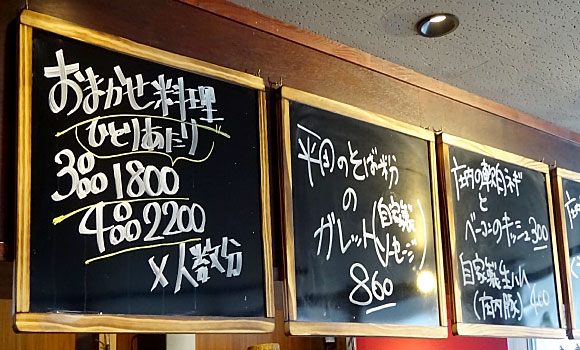 おまかせ料理
ひとりあたり
3品 1800
4品 2200
×人数分
平田のそば粉
の
ガレット(自家製ソーセージ)
860
庄内の軟白ネギ
と
ベーコンのキッシュ300
自家製生ハム
(庄内豚)